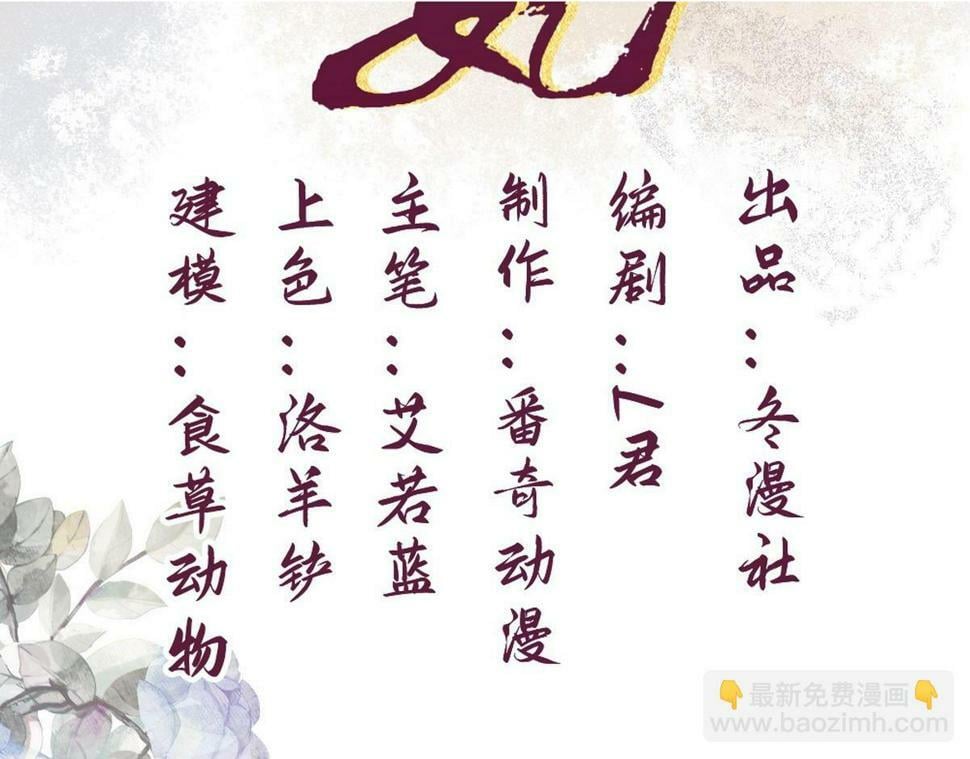 出品：冬漫社
编剧：七君
制作：番奇动漫
主笔：艾若蓝
上色：洛羊铲
建模：食草动物
👇最新免费漫画👇
www.baozimh.com